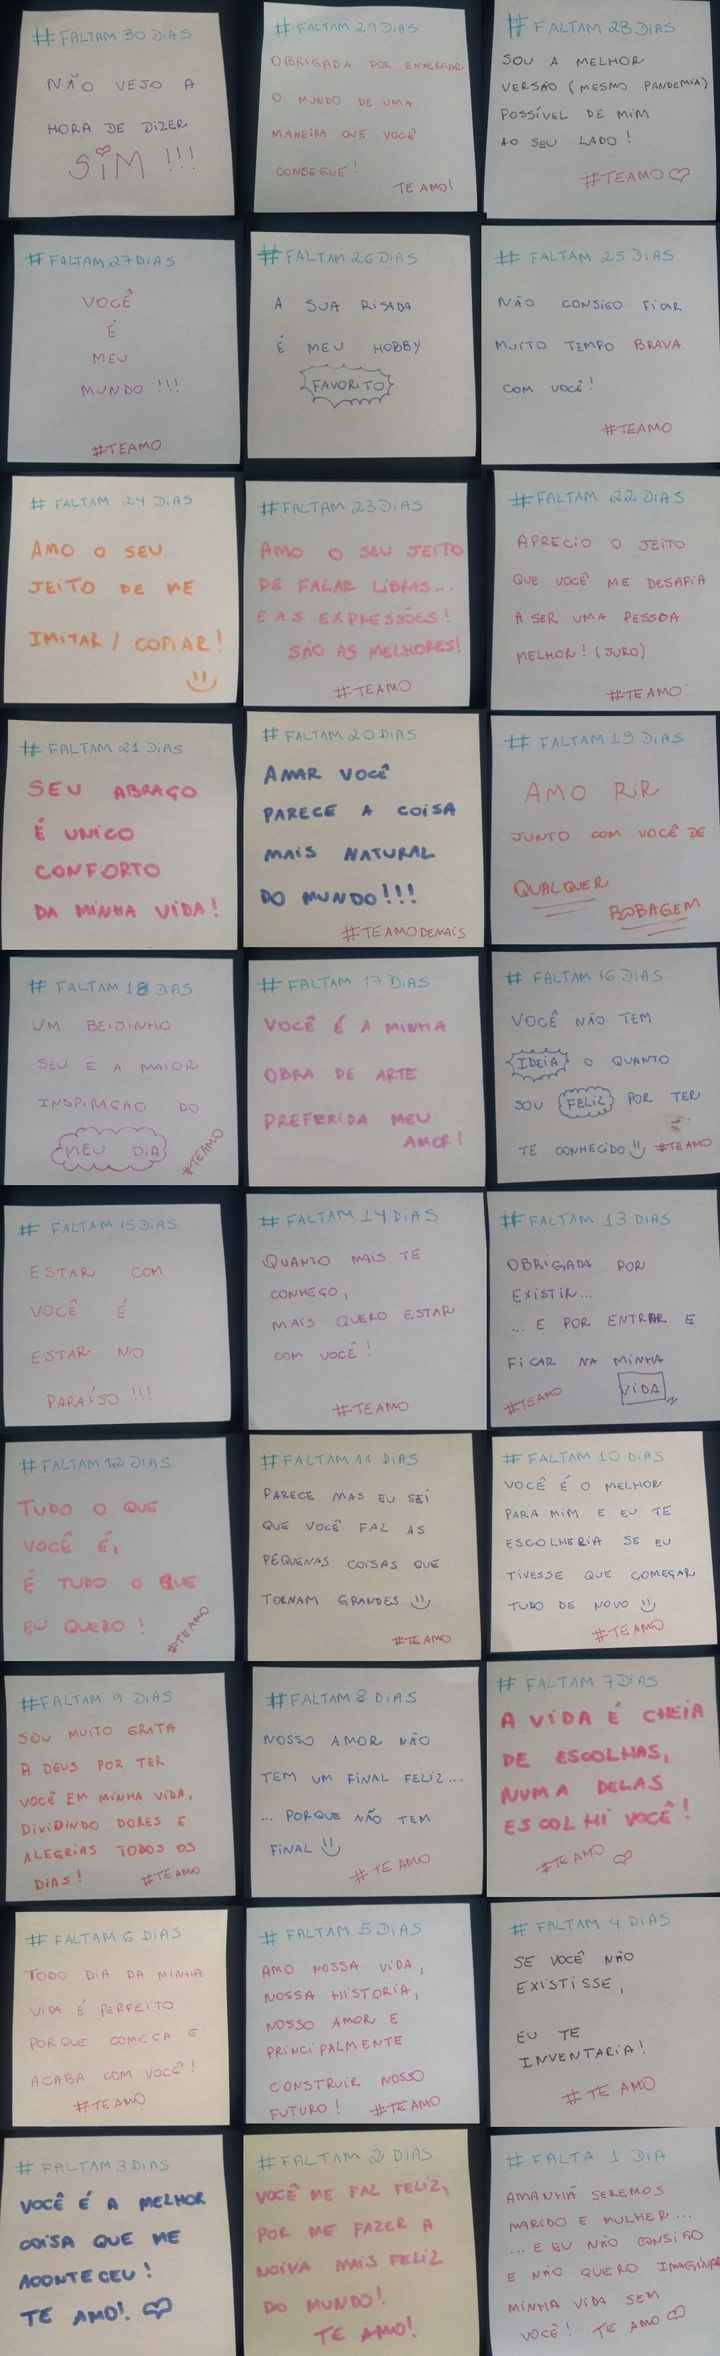 #FALTAM 30 DIAS
NÃO VEJO A
HORA DE DIZER
SIM !!!
#FALTAM 29 DIAS
OBRIGADA POR ENXERGAR
O MUNDO DE UMA
MANEIRA QUE VOCÊ
CONSEGUE!
TE AMO!
# FALTAM 28 DIAS
SOU A MELHOR
VERSÃO (MESMO PANDEMIA)
POSSÍVEL DE MIM
AO SEU LADO!
#TEAMO
# FALTAM 27 DIAS
VOCÊ
É
MEU
MUNDO !!!
#TEAMO
# FALTAM 26 DIAS
A SUA RISADA
É MEU HOBBY
FAVORITO
# FALTAM 25 DIAS
NÃO CONSIGO FICAR
MUITO TEMPO BRAVA
COM VOCÊ!
#TEAMO
# FALTAM 24 DIAS
AMO O SEU
JEITO DE ME
IMITAR / COPIAR!
#FALTAM 23 DIAS
AMO O SEU JEITO
DE FALAR LIBRAS...
E AS EXPRESSÕES!
SÃO AS MELHORES!
#TEAMO
#FALTAM 22 DIAS
APRECIO O JEITO
QUE VOCÊ ME DESAFIA
A SER UMA PESSOA
MELHOR! (JURO)
#TEAMO
# FALTAM 21 DIAS
SEU ABRAÇO
É UNICO
CONFORTO
DA MINHA VIDA!
# FALTAM 20 DIAS
AMAR VOCÊ
PARECE A COISA
MAIS NATURAL
DO MUNDO!!!
#TEAMODEMAIS
# FALTAM 19 DIAS
AMO RIR
JUNTO COM VOCÊ DE
QUALQUER
BOBAGEM
# FALTAM 18 DIAS
UM BEIJINHO
SEU É A MAIOR
INSPIRAÇÃO DO
MEU DIA
#TEAMO
# FALTAM 17 DIAS
VOCÊ É A MINHA
OBRA DE ARTE
PREFERIDA MEU
AMOR!
# FALTAM 16 DIAS
VOCÊ NÃO TEM
IDEIA O QUANTO
SOU FELIZ POR TER
TE CONHECIDO #TEAMO
# FALTAM 15 DIAS
ESTAR COM
VOCÊ É
ESTAR NO
PARAÍSO !!!
# FALTAM 14 DIAS
QUANTO MAIS TE
CONHEÇO,
MAIS QUERO ESTAR
COM VOCÊ!
#TEAMO
# FALTAM 13 DIAS
OBRIGADA POR
EXISTIR...
... E POR ENTRAR E
FICAR NA MINHA
VIDA
#TEAMO
# FALTAM 12 DIAS
TUDO O QUE
VOCÊ É,
É TUDO O QUE
EU QUERO!
#TEAMO
#FALTAM 11 DIAS
PARECE MAS EU SEI
QUE VOCÊ FAZ AS
PEQUENAS COISAS QUE
TORNAM GRANDES
#TEAMO
# FALTAM 10 DIAS
VOCÊ É O MELHOR
PARA MIM E EU TE
ESCOLHERIA SE EU
TIVESSE QUE COMEÇAR
TUDO DE NOVO
#TE AMO
#FALTAM 9 DIAS
SOU MUITO GRATA
A DEUS POR TER
VOCÊ EM MINHA VIDA,
DIVIDINDO DORES E
ALEGRIAS TODOS OS
DIAS! #TEAMO
#FALTAM 8 DIAS
NOSSO AMOR NÃO
TEM UM FINAL FELIZ...
... PORQUE NÃO TEM
FINAL
# TE AMO
# FALTAM 7 DIAS
A VIDA É CHEIA
DE ESCOLHAS,
NUMA DELAS
ESCOLHI VOCÊ!
#TE AMO
# FALTAM 6 DIAS
TODO DIA DA MINHA
VIDA É PERFEITO
PORQUE COMEÇA E
ACABA COM VOCÊ!
#TEAMO
# FALTAM 5 DIAS
AMO NOSSA VIDA,
NOSSA HISTORIA,
NOSSO AMOR E
PRINCIPALMENTE
CONSTRUIR NOSSO
FUTURO! #TE AMO
# FALTAM 4 DIAS
SE VOCÊ NÃO
EXISTISSE,
EU TE
INVENTARIA!
# TE AMO
# FALTAM 3 DIAS
VOCÊ É A MELHOR
COISA QUE ME
ACONTECEU!
TE AMO!
#FALTAM 2 DIAS
VOCÊ ME FAZ FELIZ,
POR ME FAZER A
NOIVA MAIS FELIZ
DO MUNDO!
TE AMO!
# FALTA 1 DIA
AMANHÃ SEREMOS
MARIDO E MULHER...
... E EU NÃO CONSIGO
E NÃO QUERO IMAGINAR
MINHA VIDA SEM
VOCÊ! TE AMO